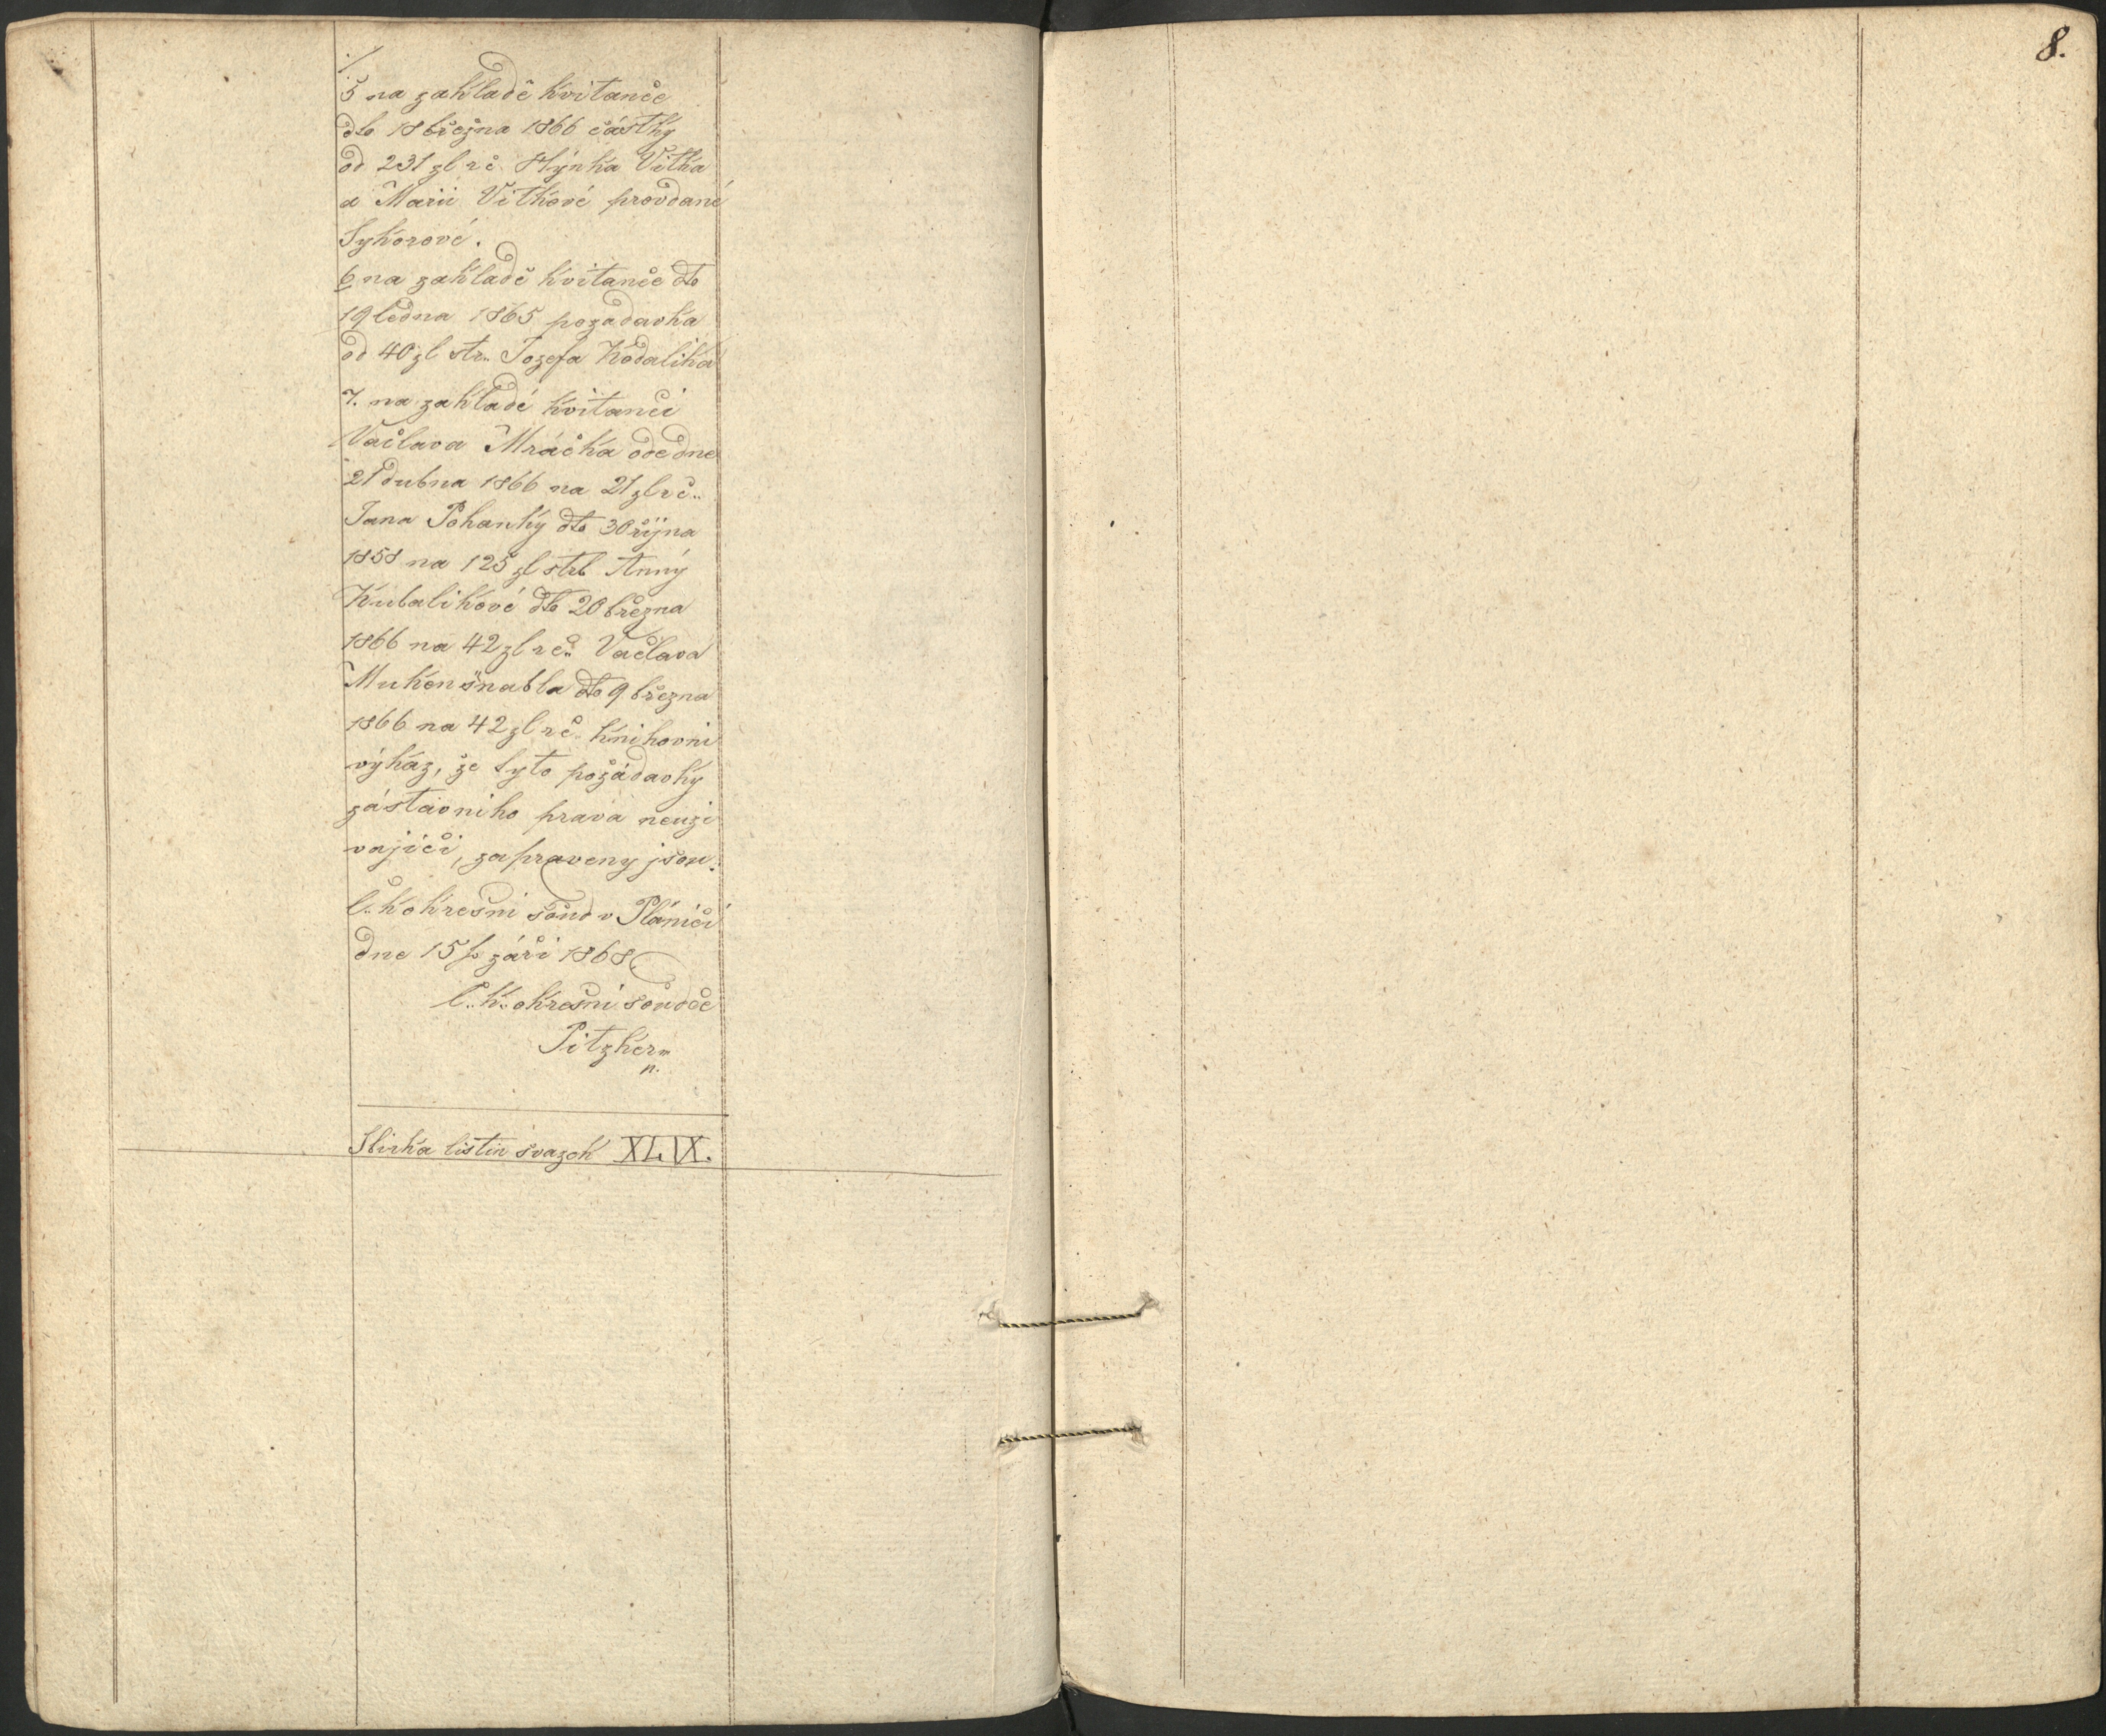 ./.
5 na zakladě kvitanče
dto 18 března 1866 částky
od 231 zl r č Hýnka Vítka
a Marii Vitkové provdané
Sykorové.
6 na zakladě kvitanče dto
19 ledna 1865 pozadavka
od 40 zl str. Jozefa Kódalika
7. na zakladé kvitanči
Vačlava Mráčka ode dne
21 dubna 1866 na 21 zl r č.
Jana Pohanky dto 30 října
1858 na 125 zl strb Anný
Kubalikové dto 20 března
1866 na 42 zl r č. Vačlava
Mukenšnabla dto 9 března
1866 na 42 zl r č. Knihovni
výkaz, že tyto požádavky
zástavniho prava neuzi
vajiči, zapraveny jsou.
C. k okresni soud v Pláničí
dne 15 září 1868
C. k. okresní soudče
Pitzker m
p.
Sbirka listin svazek XLIX.
8.